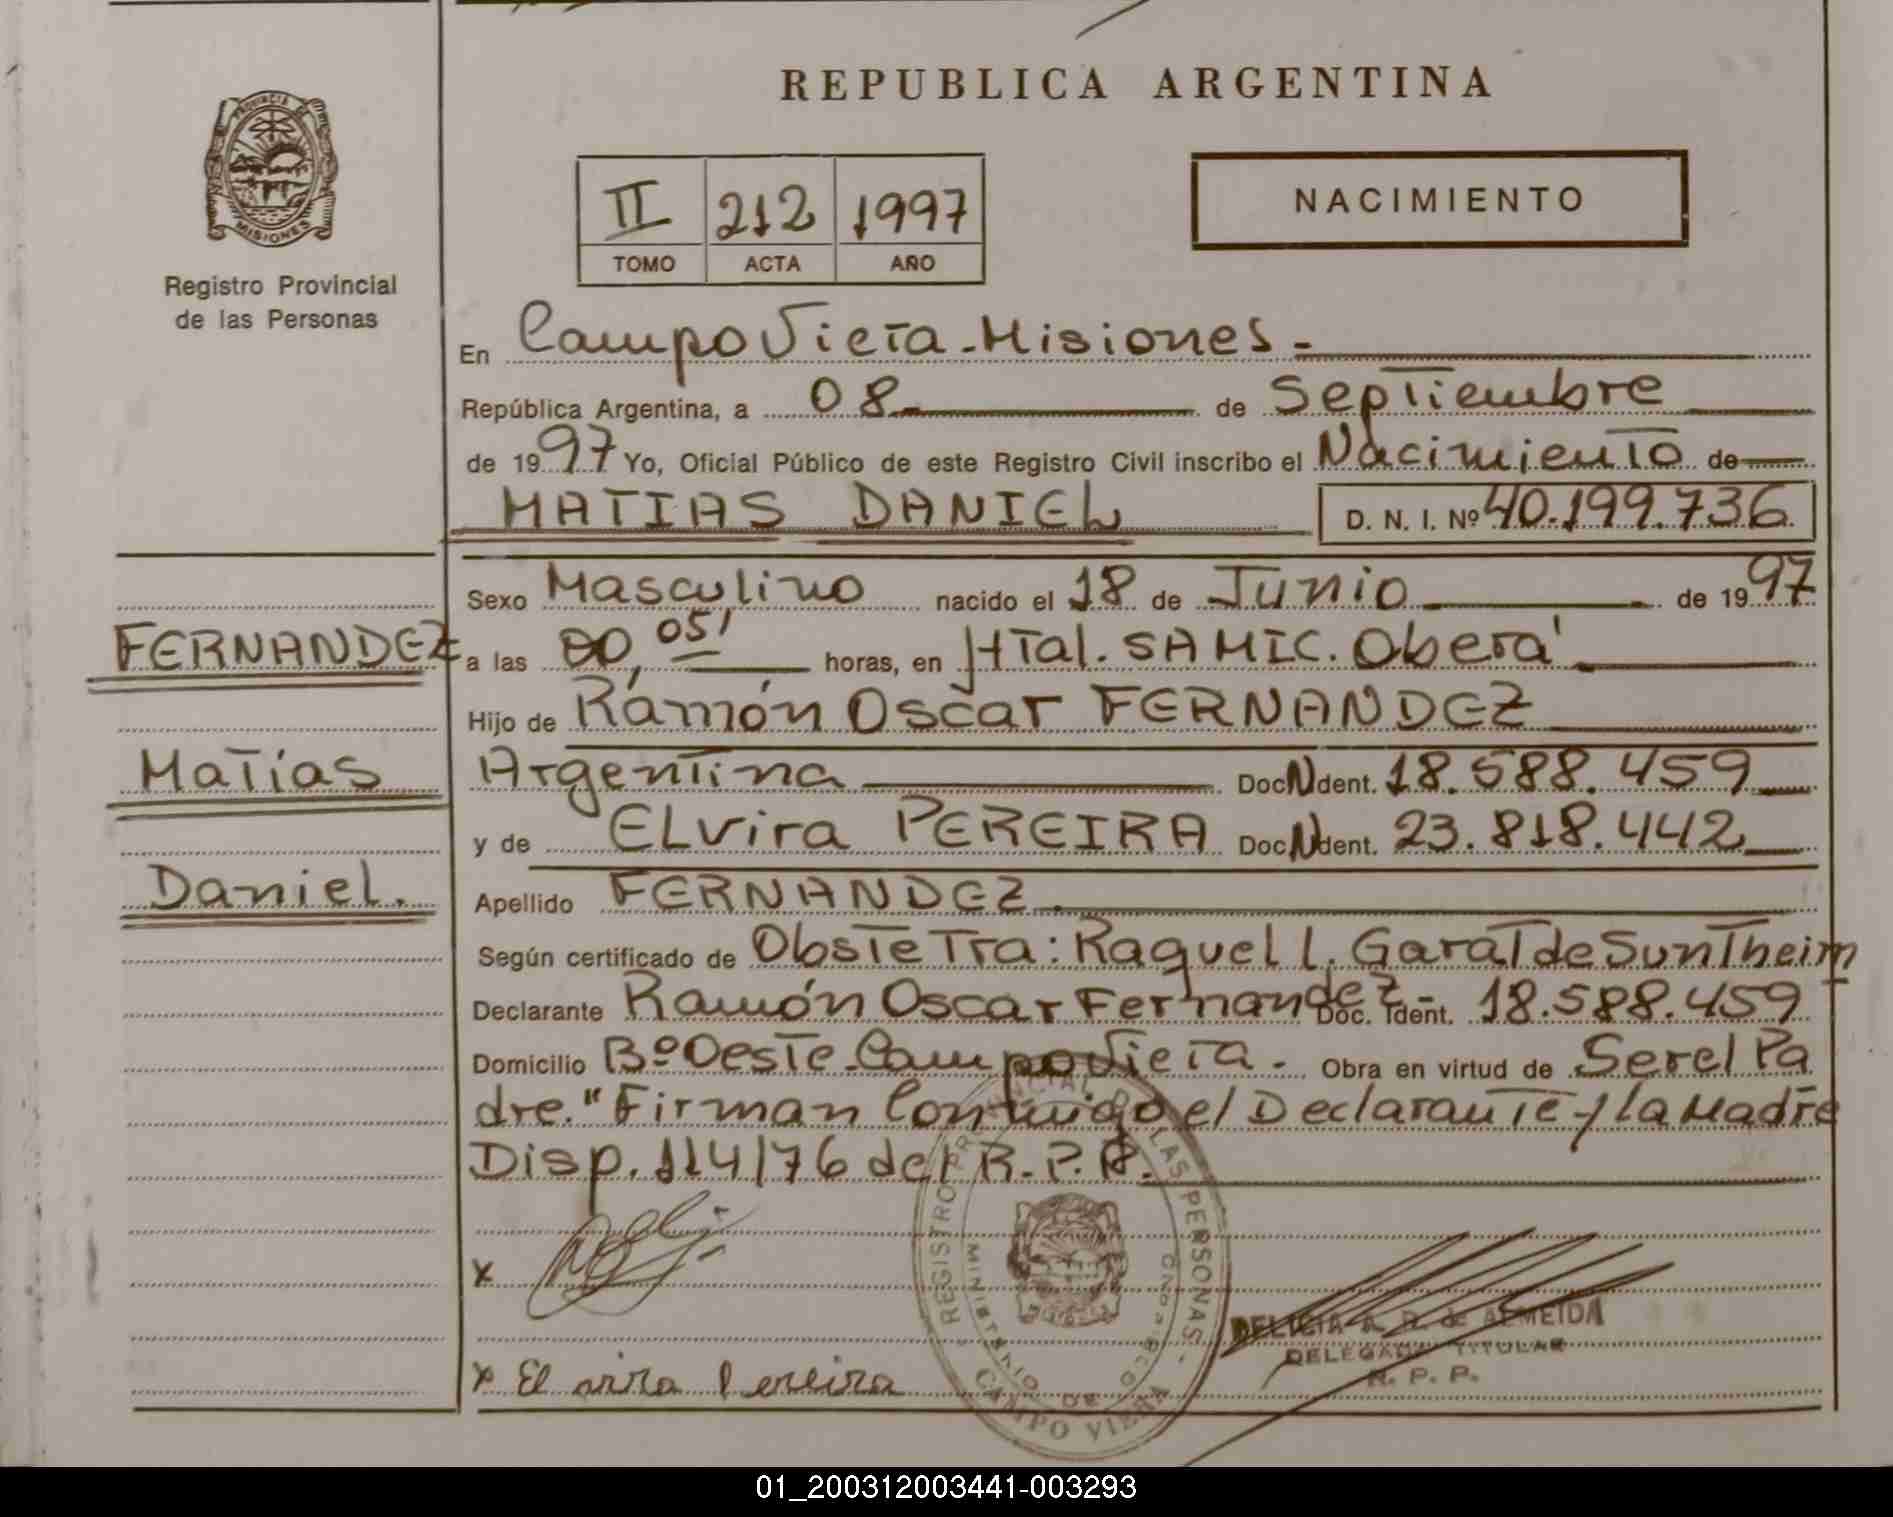 REPUBLICA ARGENTINA
PROVINCIA DE MISIONES
Registro Provincial
de las Personas
II 212 1997
TOMO ACTA AÑO
NACIMIENTO
En Campo Vieta - Misiones -
República Argentina, a 08 de Septiembre
de 1997 Yo, Oficial Público de este Registro Civil inscribo el Nacimiento de
MATIAS DANIEL D. N. I. Nº 40.199.736
Sexo Masculino nacido el 18 de Junio de 1997
FERNANDEZ
a las 00,05' horas, en HTal. SAMIC. Oberá
Hijo de Ramón Oscar FERNANDEZ
Matías
Argentina Doc N Ident. 18.588.459
y de ELvira PEREIRA Doc N Ident. 23.818.442
Daniel.
Apellido FERNANDEZ.
Según certificado de ObsteTra: Raquel l. Garat de Suntheim
Declarante Ramón Oscar Fernandez - Doc. Ident. 18.588.459
Domicilio Bº Oeste - Campo Vieta - Obra en virtud de Ser el Pa
dre." Firman Conmigo el Declarante y la Madre
Disp. 114/76 del R.P.P.
REGISTRO PROVINCIAL DE LAS PERSONAS
MINISTERIO DE GOBIERNO
CAMPO VIERA
x
x Elvira Pereira
DELICIA A. R. de ALMEIDA
DELEGADA TITULAR
R. P. P.
01_200312003441-003293